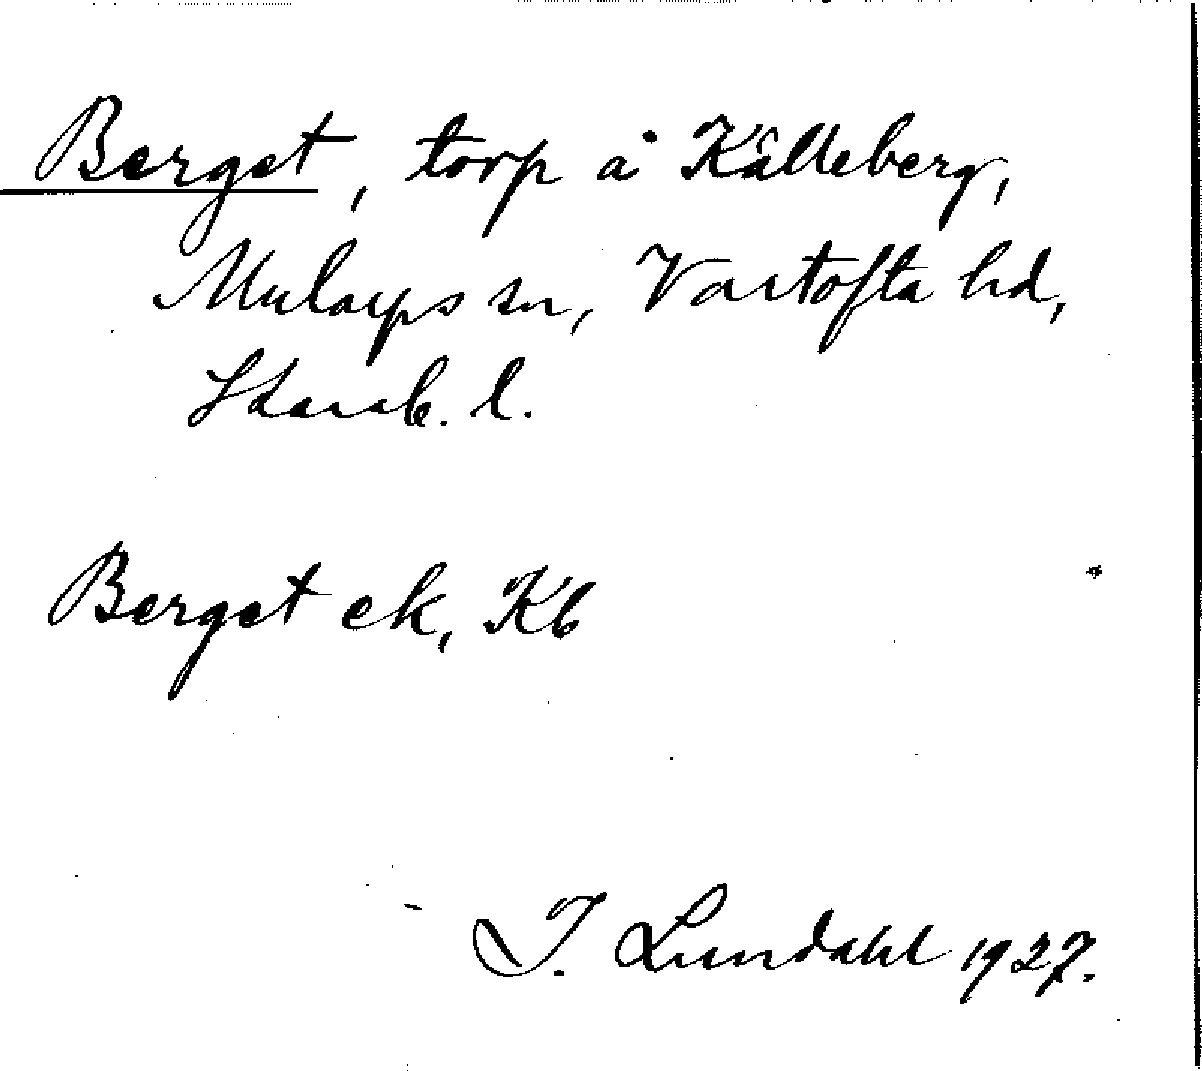 Berget, torp å Källeberg,
Mularps sn, Vartofta hd,
Skarab. l.
Berget ek, Kb
I. Lundahl 1927.